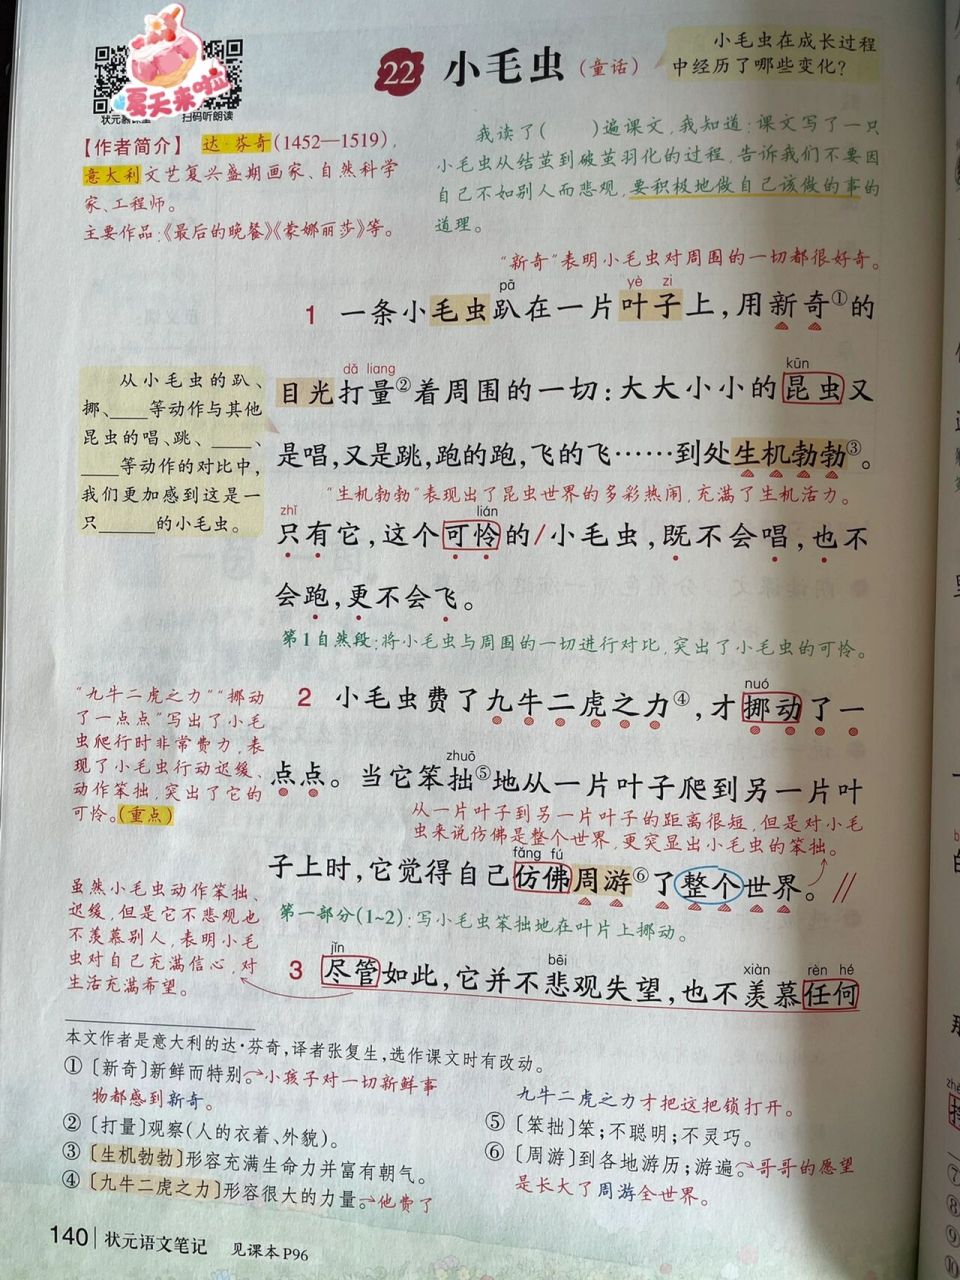 夏天来啦
状元慕课堂
扫码听朗读
22 小毛虫(童话)
小毛虫在成长过程
中经历了哪些变化?
【作者简介】 达·芬奇(1452—1519),
意大利文艺复兴盛期画家、自然科学
家、工程师。
主要作品:《最后的晚餐》《蒙娜丽莎》等。
我读了( )遍课文,我知道:课文写了一只
小毛虫从结茧到破茧羽化的过程,告诉我们不要因
自己不如别人而悲观,要积极地做自己该做的事的
道理。
“新奇”表明小毛虫对周围的一切都很好奇。
pā yè zi
1 一条小毛虫趴在一片叶子上,用新奇①的
dǎ liang kūn
目光打量②着周围的一切:大大小小的昆虫又
是唱,又是跳,跑的跑,飞的飞……到处生机勃勃③。
“生机勃勃”表现出了昆虫世界的多彩热闹,充满了生机活力。
zhǐ lián
只有它,这个可怜的/小毛虫,既不会唱,也不
会跑,更不会飞。
第1自然段:将小毛虫与周围的一切进行对比,突出了小毛虫的可怜。
从小毛虫的趴、
挪、____等动作与其他
昆虫的唱、跳、____、
____等动作的对比中,
我们更加感到这是一
只______的小毛虫。
nuó
2 小毛虫费了九牛二虎之力④,才挪动了一
zhuō
点点。当它笨拙⑤地从一片叶子爬到另一片叶
从一片叶子到另一片叶子的距离很短,但是对小毛
虫来说仿佛是整个世界,更突显出小毛虫的笨拙。
fǎng fú
子上时,它觉得自己仿佛周游⑥了整个世界。//
第一部分(1~2):写小毛虫笨拙地在叶片上挪动。
“九牛二虎之力”“挪动
了一点点”写出了小毛
虫爬行时非常费力,表
现了小毛虫行动迟缓、
动作笨拙,突出了它的
可怜。(重点)
虽然小毛虫动作笨拙、
迟缓,但是它不悲观也
不羡慕别人,表明小毛
虫对自己充满信心,对
生活充满希望。
jǐn bēi xiàn rèn hé
3 尽管如此,它并不悲观失望,也不羡慕任何
本文作者是意大利的达·芬奇,译者张复生,选作课文时有改动。
①〔新奇〕新鲜而特别。小孩子对一切新鲜事
物都感到新奇。
②〔打量〕观察(人的衣着、外貌)。
③〔生机勃勃〕形容充满生命力并富有朝气。
④〔九牛二虎之力〕形容很大的力量。他费了
九牛二虎之力才把这把锁打开。
⑤〔笨拙〕笨;不聪明;不灵巧。
⑥〔周游〕到各地游历;游遍。哥哥的愿望
是长大了周游全世界。
140 | 状元语文笔记 见课本P96